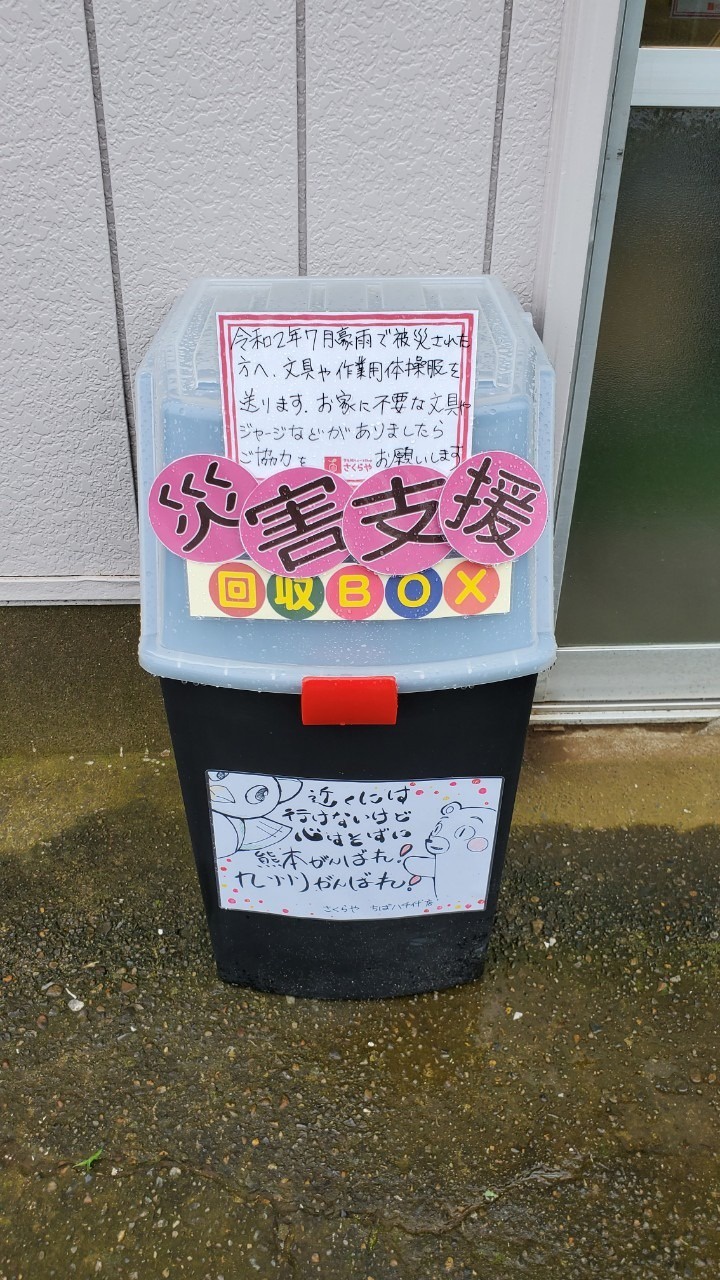 令和2年7月豪雨で被災された
方へ、文具や作業用体操服を
送ります。お家に不要な文具や
ジャージなどがありましたら
ご協力を さくらや お願いします
災害支援
回収BOX
近くには
行けないけど
心はそばに
熊本がんばれ!
九州がんばれ!
さくらや ちばハナイグ店